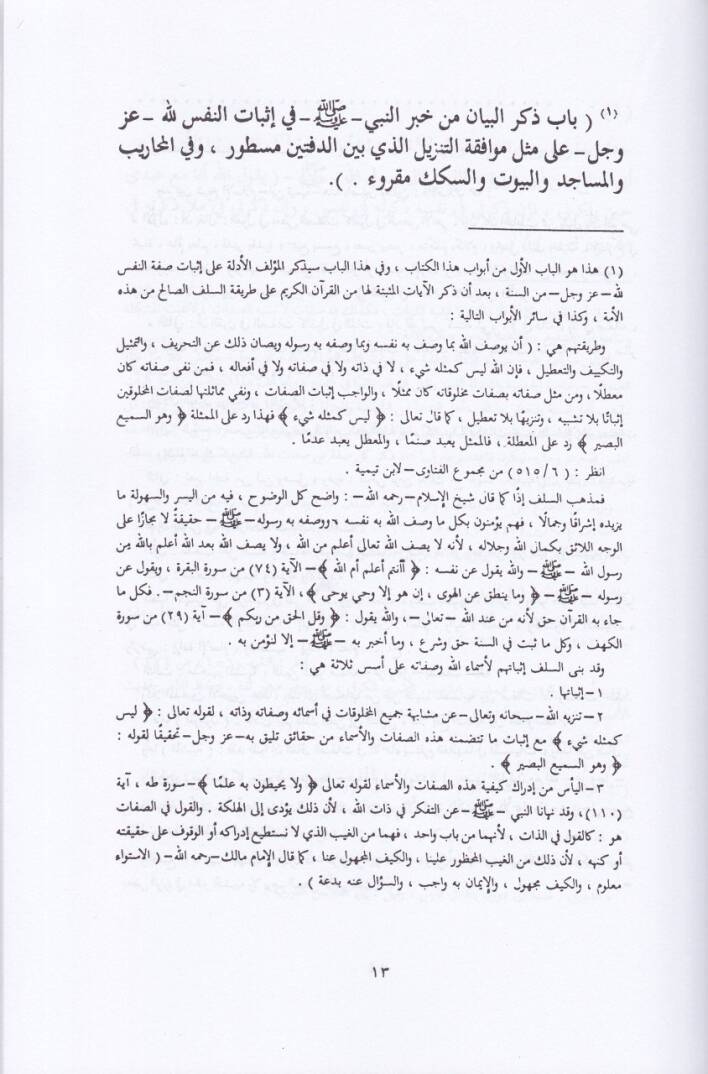 (١) ( باب ذكر البيان من خبر النبي - ﷺ - في إثبات النفس لله - عز
وجل - على مثل موافقة التنزيل الذي بين الدفتين مسطور ، وفي المحاريب
والمساجد والبيوت والسكك مقروء . ) .
(١) هذا هو الباب الأول من أبواب هذا الكتاب ، وفي هذا الباب سيذكر المؤلف الأدلة على إثبات صفة النفس
لله - عز وجل - من السنة ، بعد أن ذكر الآيات المثبتة لها من القرآن الكريم على طريقة السلف الصالح من هذه
الأمة ، وكذا في سائر الأبواب التالية :
وطريقتهم هي : ( أن يوصف الله بما وصف به نفسه وبما وصفه به رسوله ويصان ذلك عن التحريف ، والتمثيل
والتكييف والتعطيل ، فإن الله ليس كمثله شيء ، لا في ذاته ولا في صفاته ولا في أفعاله ، فمن نفى صفاته كان
معطلًا ، ومن مثل صفاته بصفات مخلوقاته كان ممثلًا ، والواجب إثبات الصفات ، ونفي مماثلتها لصفات المخلوقين
إثباتًا بلا تشبيه ، وتنزيهًا بلا تعطيل ، كما قال تعالى : ﴿ ليس كمثله شيء ﴾ فهذا رد على الممثلة ﴿ وهو السميع
البصير ﴾ رد على المعطلة ، فالممثل يعبد صنمًا ، والمعطل يعبد عدمًا .
انظر : ( ٥١٥/٦ ) من مجموع الفتاوى - لابن تيمية .
فمذهب السلف إذًا كما قال شيخ الإسلام - رحمه الله - : واضح كل الوضوح ، فيه من اليسر والسهولة ما
يزيده إشراقًا وجمالًا ، فهم يؤمنون بكل ما وصف الله به نفسه ووصفه به رسوله - ﷺ - حقيقةً لا مجازًا على
الوجه اللائق بكمال الله وجلاله ، لأنه لا يصف الله تعالى أعلم من الله ، ولا يصف الله بعد الله أعلم بالله مِن
رسول الله - ﷺ - والله يقول عن نفسه : ﴿ أأنتم أعلم أم الله ﴾ - الآية (٧٤) من سورة البقرة ، ويقول عن
رسوله - ﷺ - ﴿ وما ينطق عن الهوى ، إن هو إلا وحي يوحى ﴾ ، الآية (٣) من سورة النجم - . فكل ما
جاء به القرآن حق لأنه من عند الله - تعالى - ، والله يقول : ﴿ وقل الحق من ربكم ﴾ - آية (٢٩) من سورة
الكهف ، وكل ما ثبت في السنة حق وشرع ، وما أخبر به - ﷺ - إلا لنؤمن به .
وقد بنى السلف إثباتهم لأسماء الله وصفاته على أسس ثلاثة هي :
١ - إثباتها .
٢ - تنزيه الله - سبحانه وتعالى - عن مشابهة جميع المخلوقات في أسمائه وصفاته وذاته ، لقوله تعالى : ﴿ ليس
كمثله شيء ﴾ مع إثبات ما تتضمنه هذه الصفات والأسماء من حقائق تليق به - عز وجل - تحقيقًا لقوله :
﴿ وهو السميع البصير ﴾ .
٣ - اليأس من إدراك كيفية هذه الصفات والأسماء لقوله تعالى ﴿ ولا يحيطون به علمًا ﴾ - سورة طه ، آية
(١١٠) ، وقد نهانا النبي - ﷺ - عن التفكر في ذات الله ، لأن ذلك يؤدى إلى الهلكة . والقول في الصفات
هو : كالقول في الذات ، لأنهما من باب واحد ، فهما من الغيب الذي لا نستطيع إدراكه أو الوقوف على حقيقته
أو كنهه ، لأن ذلك من الغيب المحظور علينا ، والكيف المجهول عنا ، كما قال الإمام مالك - رحمه الله - ( الاستواء
معلوم ، والكيف مجهول ، والإيمان به واجب ، والسؤال عنه بدعة ) .
١٣